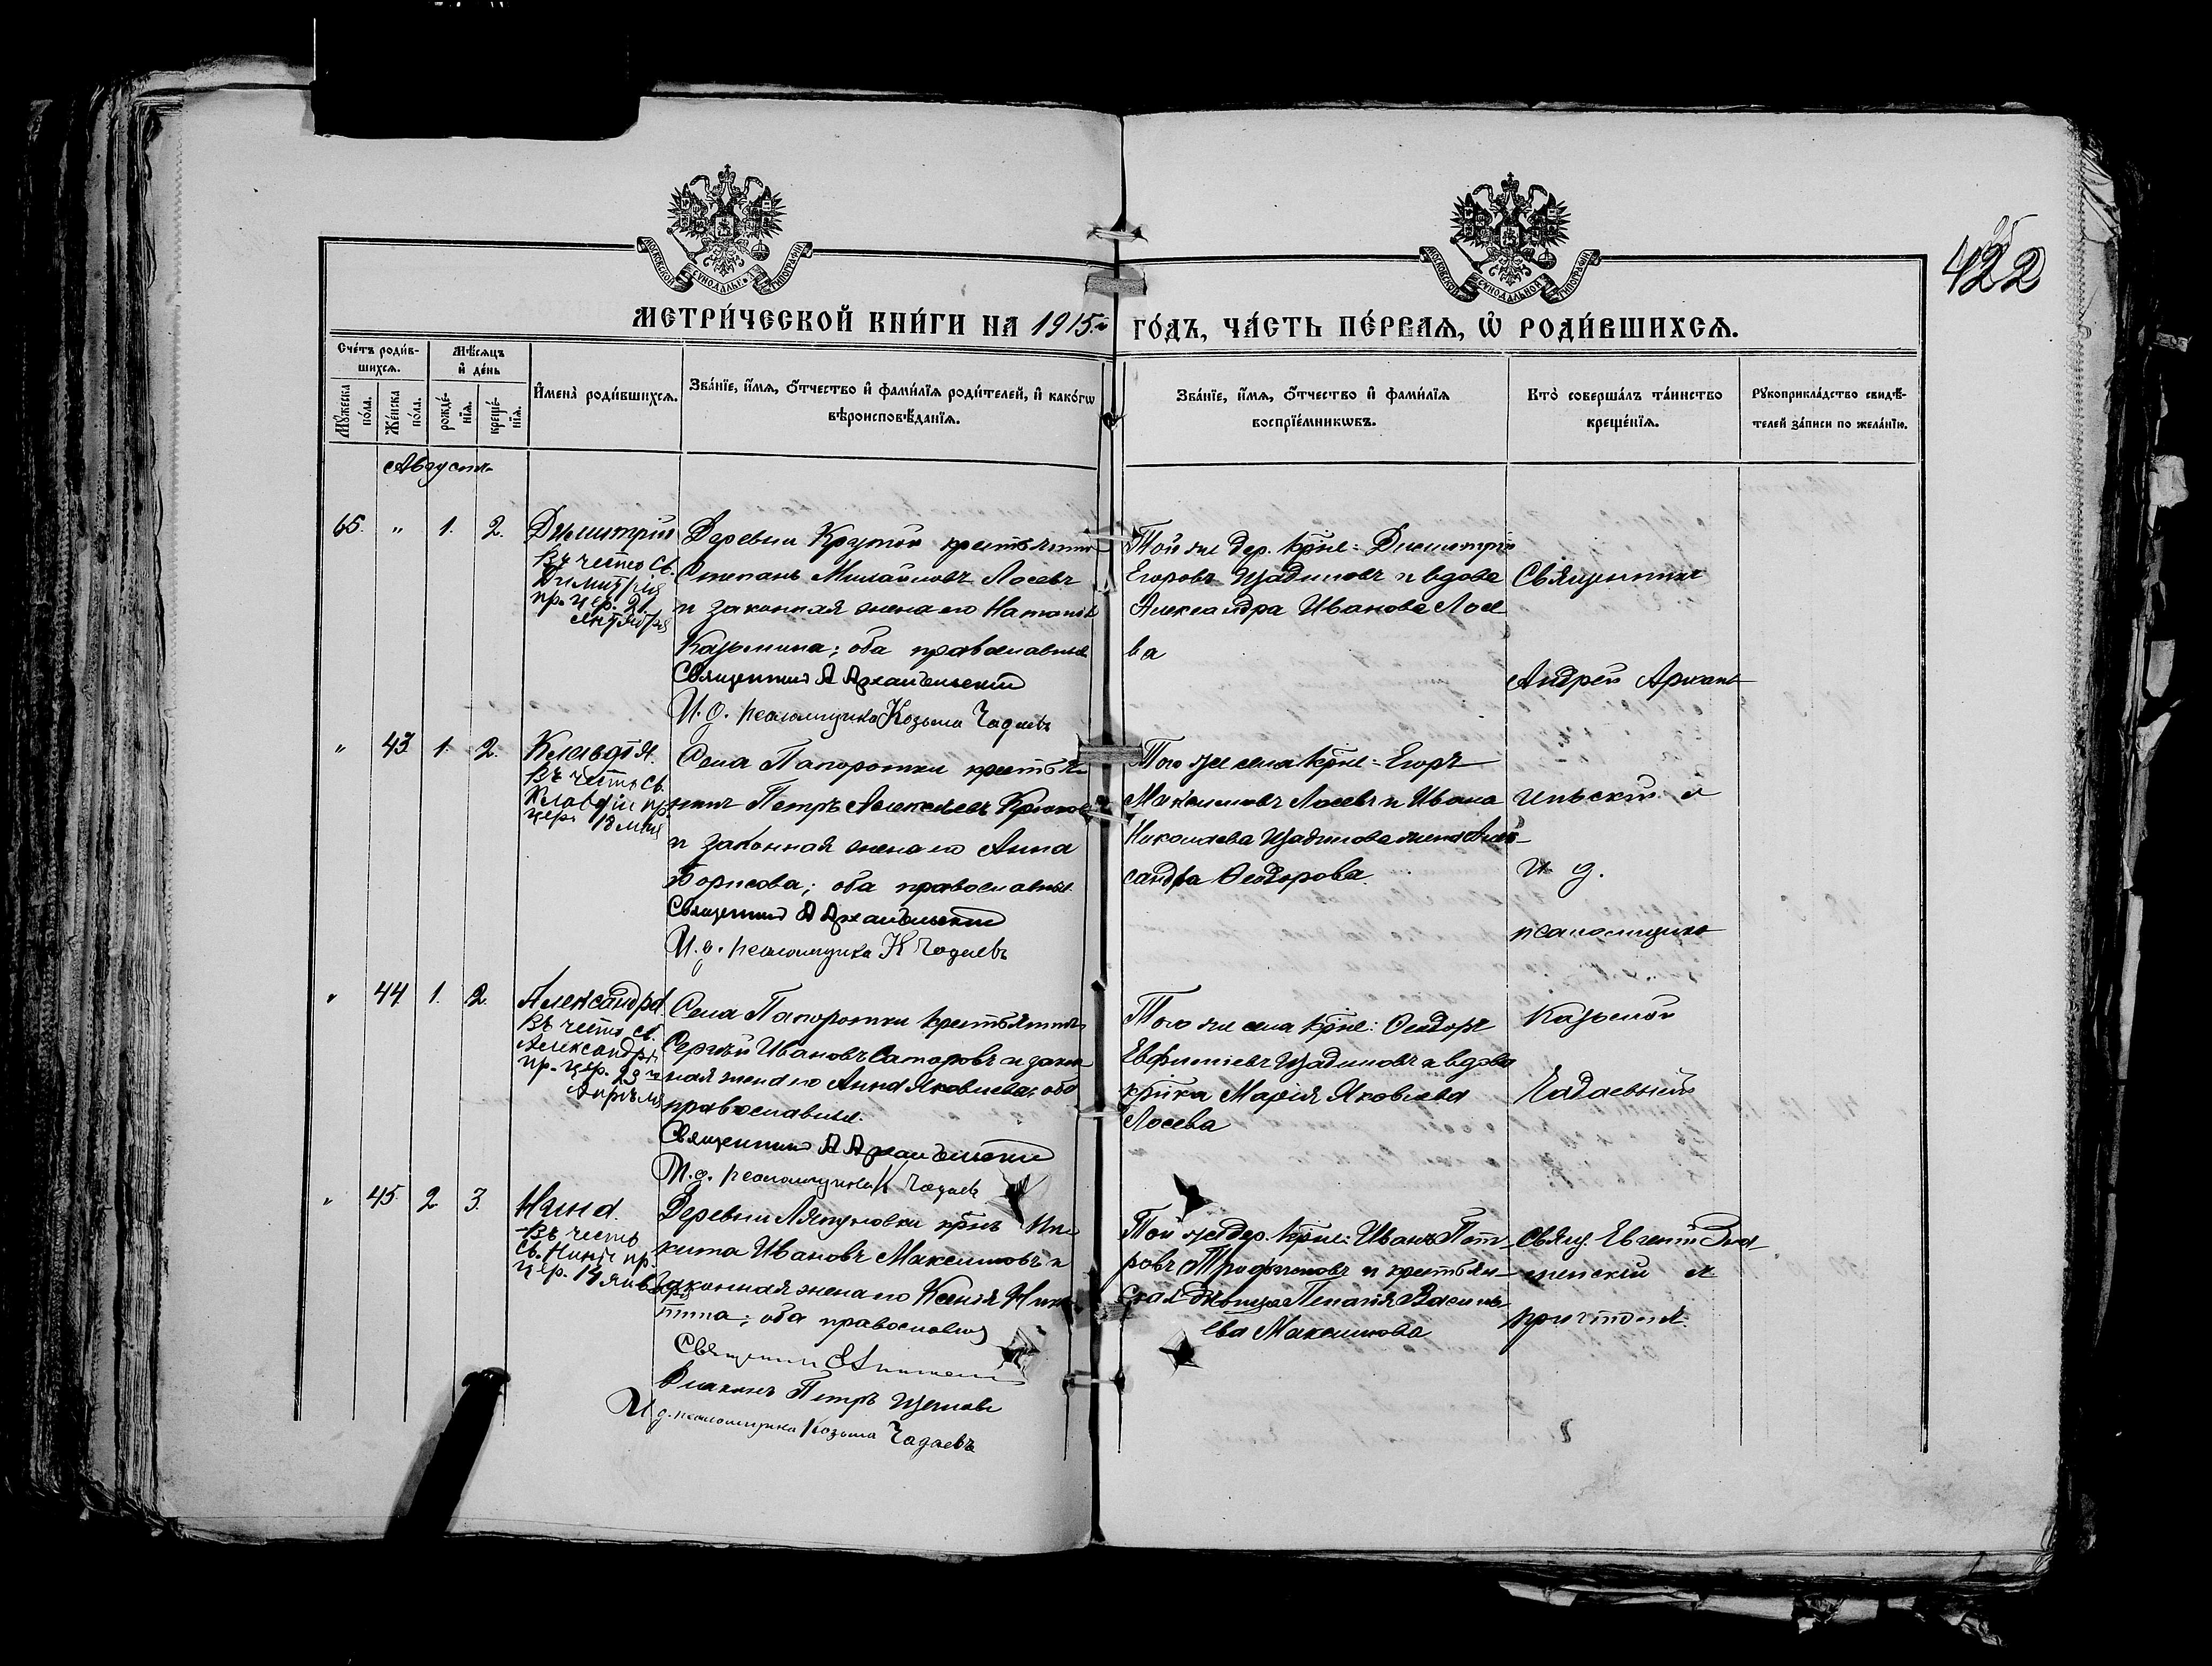 422
МОСКОВСКОЙ СѴНОДАЛЬНОЙ ТИПОГРАФІИ
МОСКОВСКОЙ СѴНОДАЛЬНОЙ ТИПОГРАФІИ
МЕТРИ́ЧЕСКОЙ КНИ́ГИ НА 1915.й ГО́ДЪ, ЧА́СТЬ ПЕ́РВАѦ, Ѡ РОДИ́ВШИХСѦ.
Сче́тъ роди́в-
шихсѧ.
Мꙋ́жеска
по́ла.
Же́нска
по́ла.
Мѣ́сѧцъ
и҆ де́нь
рожде́-
нїѧ.
креще́-
нїѧ.
И҆мена̀ роди́вшихсѧ.
Зва́нїе, и҆́мѧ, ѻ҆́тчество и҆ фами́лїѧ роди́телей, и҆ како́гѡ
вѣроисповѣ́данїѧ.
Зва́нїе, и҆́мѧ, ѻ҆́тчество и҆ фами́лїѧ
воспрїе́мникѡвъ.
Кто̀ соверша́лъ та́инство
креще́нїѧ.
Рꙋкоприкла́дство свидѣ́-
телей за́писи по жела́нїю.
Августъ
65. " 1. 2. Димитрій
Въ честь Св.
Димитрія
пр. цер. 21
Деревни Крутой крестьянинъ
Степанъ Михайловъ Лосевъ
и законная жена его Наталія
Казьмина; оба православные
Священникъ А Архангельскій
И. д. псаломщика Козьма Чадаевъ
Той же дер. крне: Димитрій
Егоровъ Щадиловъ и вдова
Александра Иванова Лосе
ва
Священникъ
Андрей Архан-
" 43 1. 2. Клавдія.
Въ честь св.
Клавдіи пр.
цер. 18 мая
Села Папоротки крестья-
нинъ Петръ Алексѣевъ
и законная жена его Анна
Борисова; оба православные
Священникъ А Архангельскій
И. д. псаломщика К Чадаевъ
Того же села крне: Егоръ
Максимовъ Лосевъ и Ивана
Николаева Щадилова жена Алек-
сандра Ѳеодорова.
гельскій и
и д.
псаломщика
" 44 1. 2. Александра
Въ честь св.
Александры
пр. цер. 23
Апрѣля
Села Папоротки крестьянинъ
Сергѣй Ивановъ и закон-
ная жена его Анна Яковлева; оба
православные.
Священникъ А Архангельскій
И. д. псаломщика К Чадаевъ
Того же села крне: Ѳеодоръ
Евфиміевъ Щадиловъ и вдова
крнка Марія Яковлева
Лосева
Казьмой
Чадаевымъ
" 45 2 3. Нина.
Въ честь
св. Нины пр.
цер. 14 янв
Деревни Ляпуновки крнъ Ни-
кита Ивановъ Максимовъ и
законная жена его Ксенія Ники-
тина; оба православные
Священникъ
Діаконъ Петръ
И д. псаломщика Козьма Чадаевъ
Той же дер. крне: Иванъ Пет-
ровъ Трофимовъ и крестьян-
ская дѣвица Пелагія Василь-
ева Максимова
Свящ. Евгеній Зна-
менскій и
причтомъ.